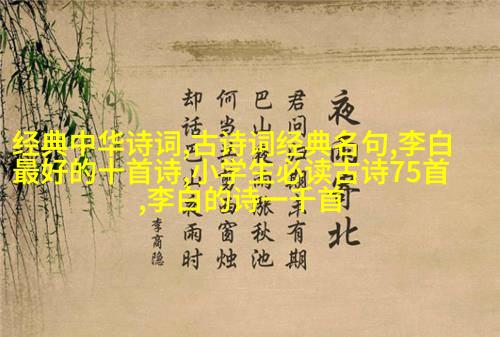 经典中华诗词,古诗词经典名句,李白
最好的十首诗,小学生必读古诗75首
,李白的诗一千首
夜雨寄北
君问归期未有期
巴山夜雨涨秋池
何当共剪西窗烛
却话巴山夜雨时
李商隐